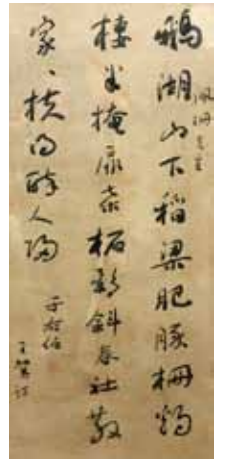 鵝湖山下稻粱肥豚柵鷄
棲半掩扉桑柘影斜春社散
家〻扶得醉人歸
先生
于右任